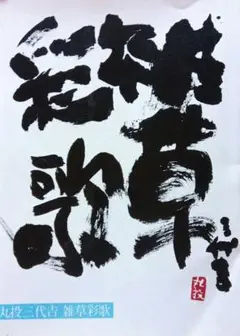 雑草
彩歌
丸投
丸投三代吉 雑草彩歌